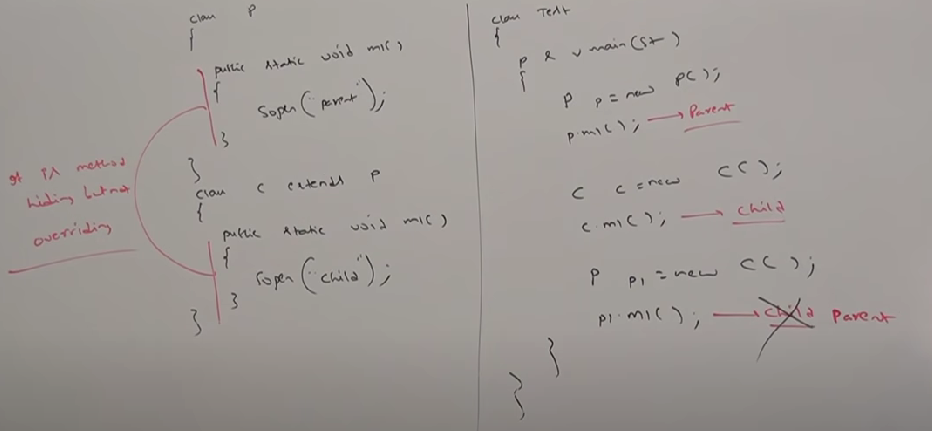 class P
{
public static void m1()
{
Sopln("parent");
}
}
class C extends P
{
public static void m1()
{
Sopln("child");
}
}
It is method
hiding but not
overriding
class Test
{
P S V main(S[]
{
P p = new P();
p.m1(); → Parent
C c = new C();
c.m1(); → Child
P p1 = new C();
p1.m1(); → Child Parent
}
}